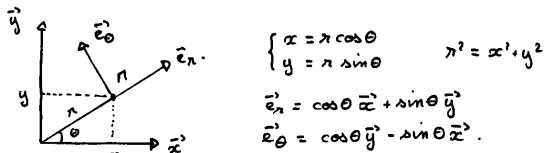 y⃗
e⃗_θ
M
e⃗_r.
y
r
θ
x
x⃗
{ x = r cosθ
y = r sinθ
r² = x² + y²
e⃗_r = cosθ x⃗ + sinθ y⃗
e⃗_θ = cosθ y⃗ - sinθ x⃗.